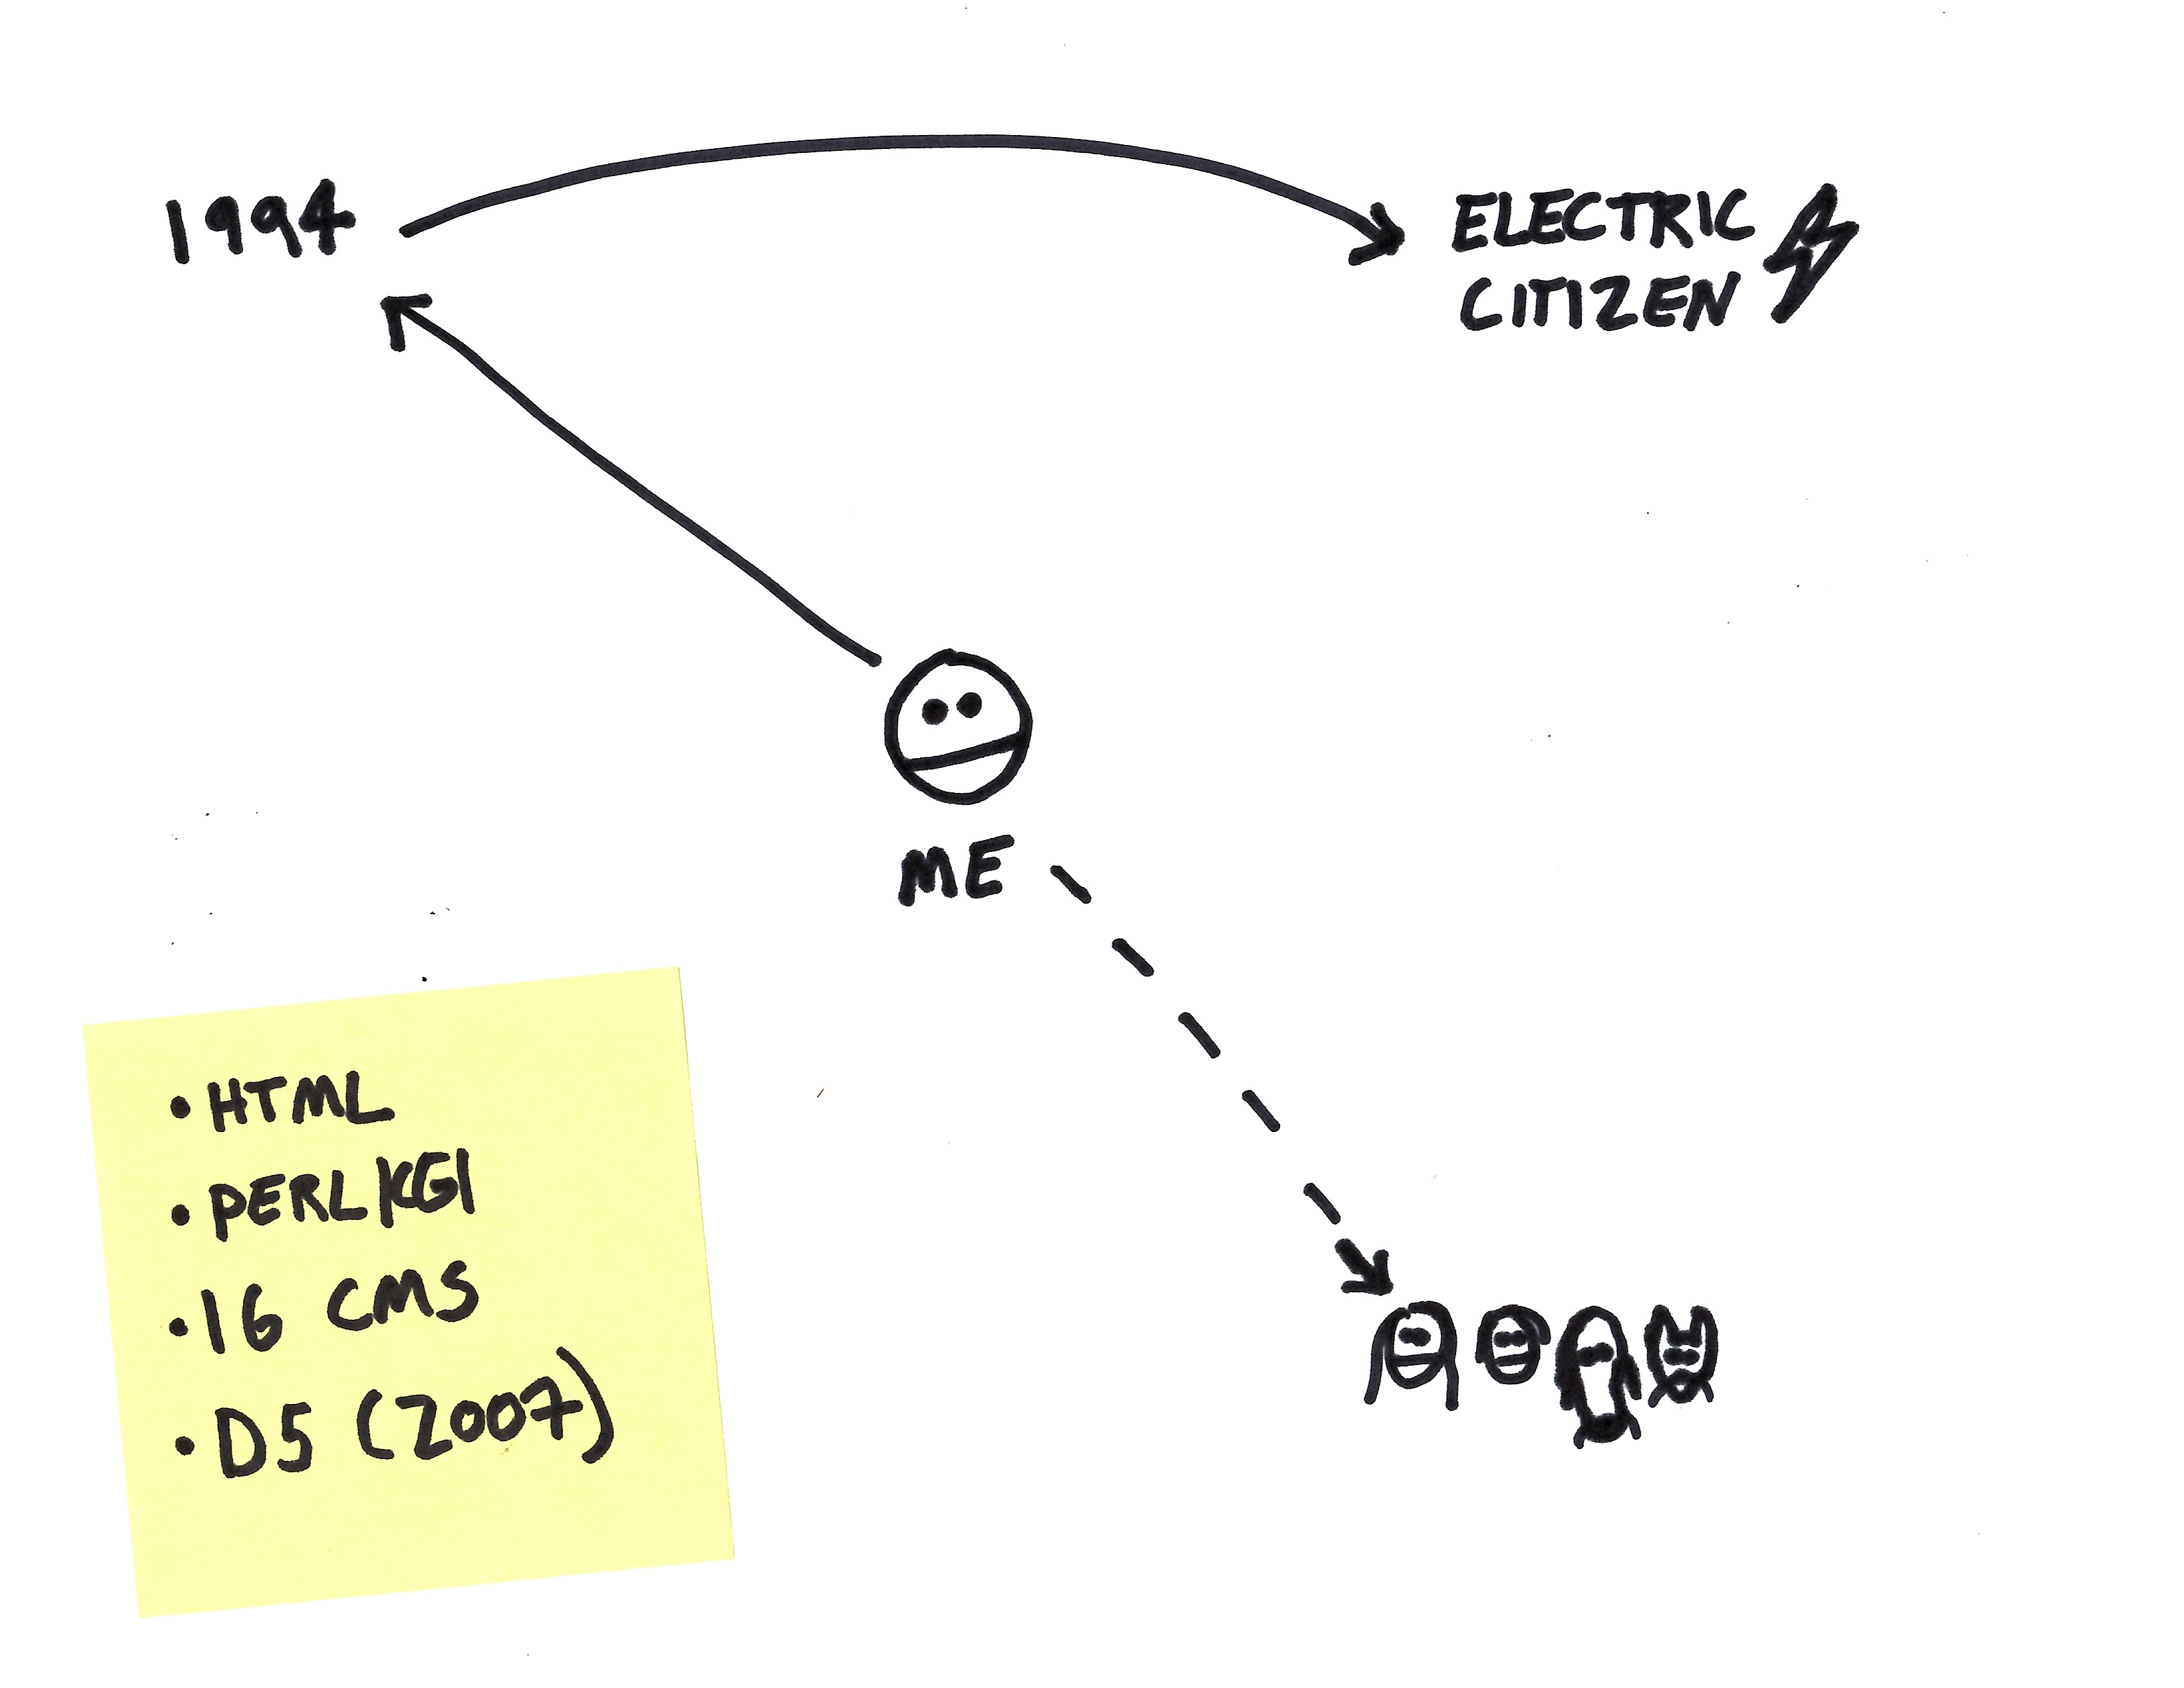 1994
ELECTRIC
CITIZEN
ME
• HTML
• PERL/CGI
• 16 CMS
• D5 (2007)